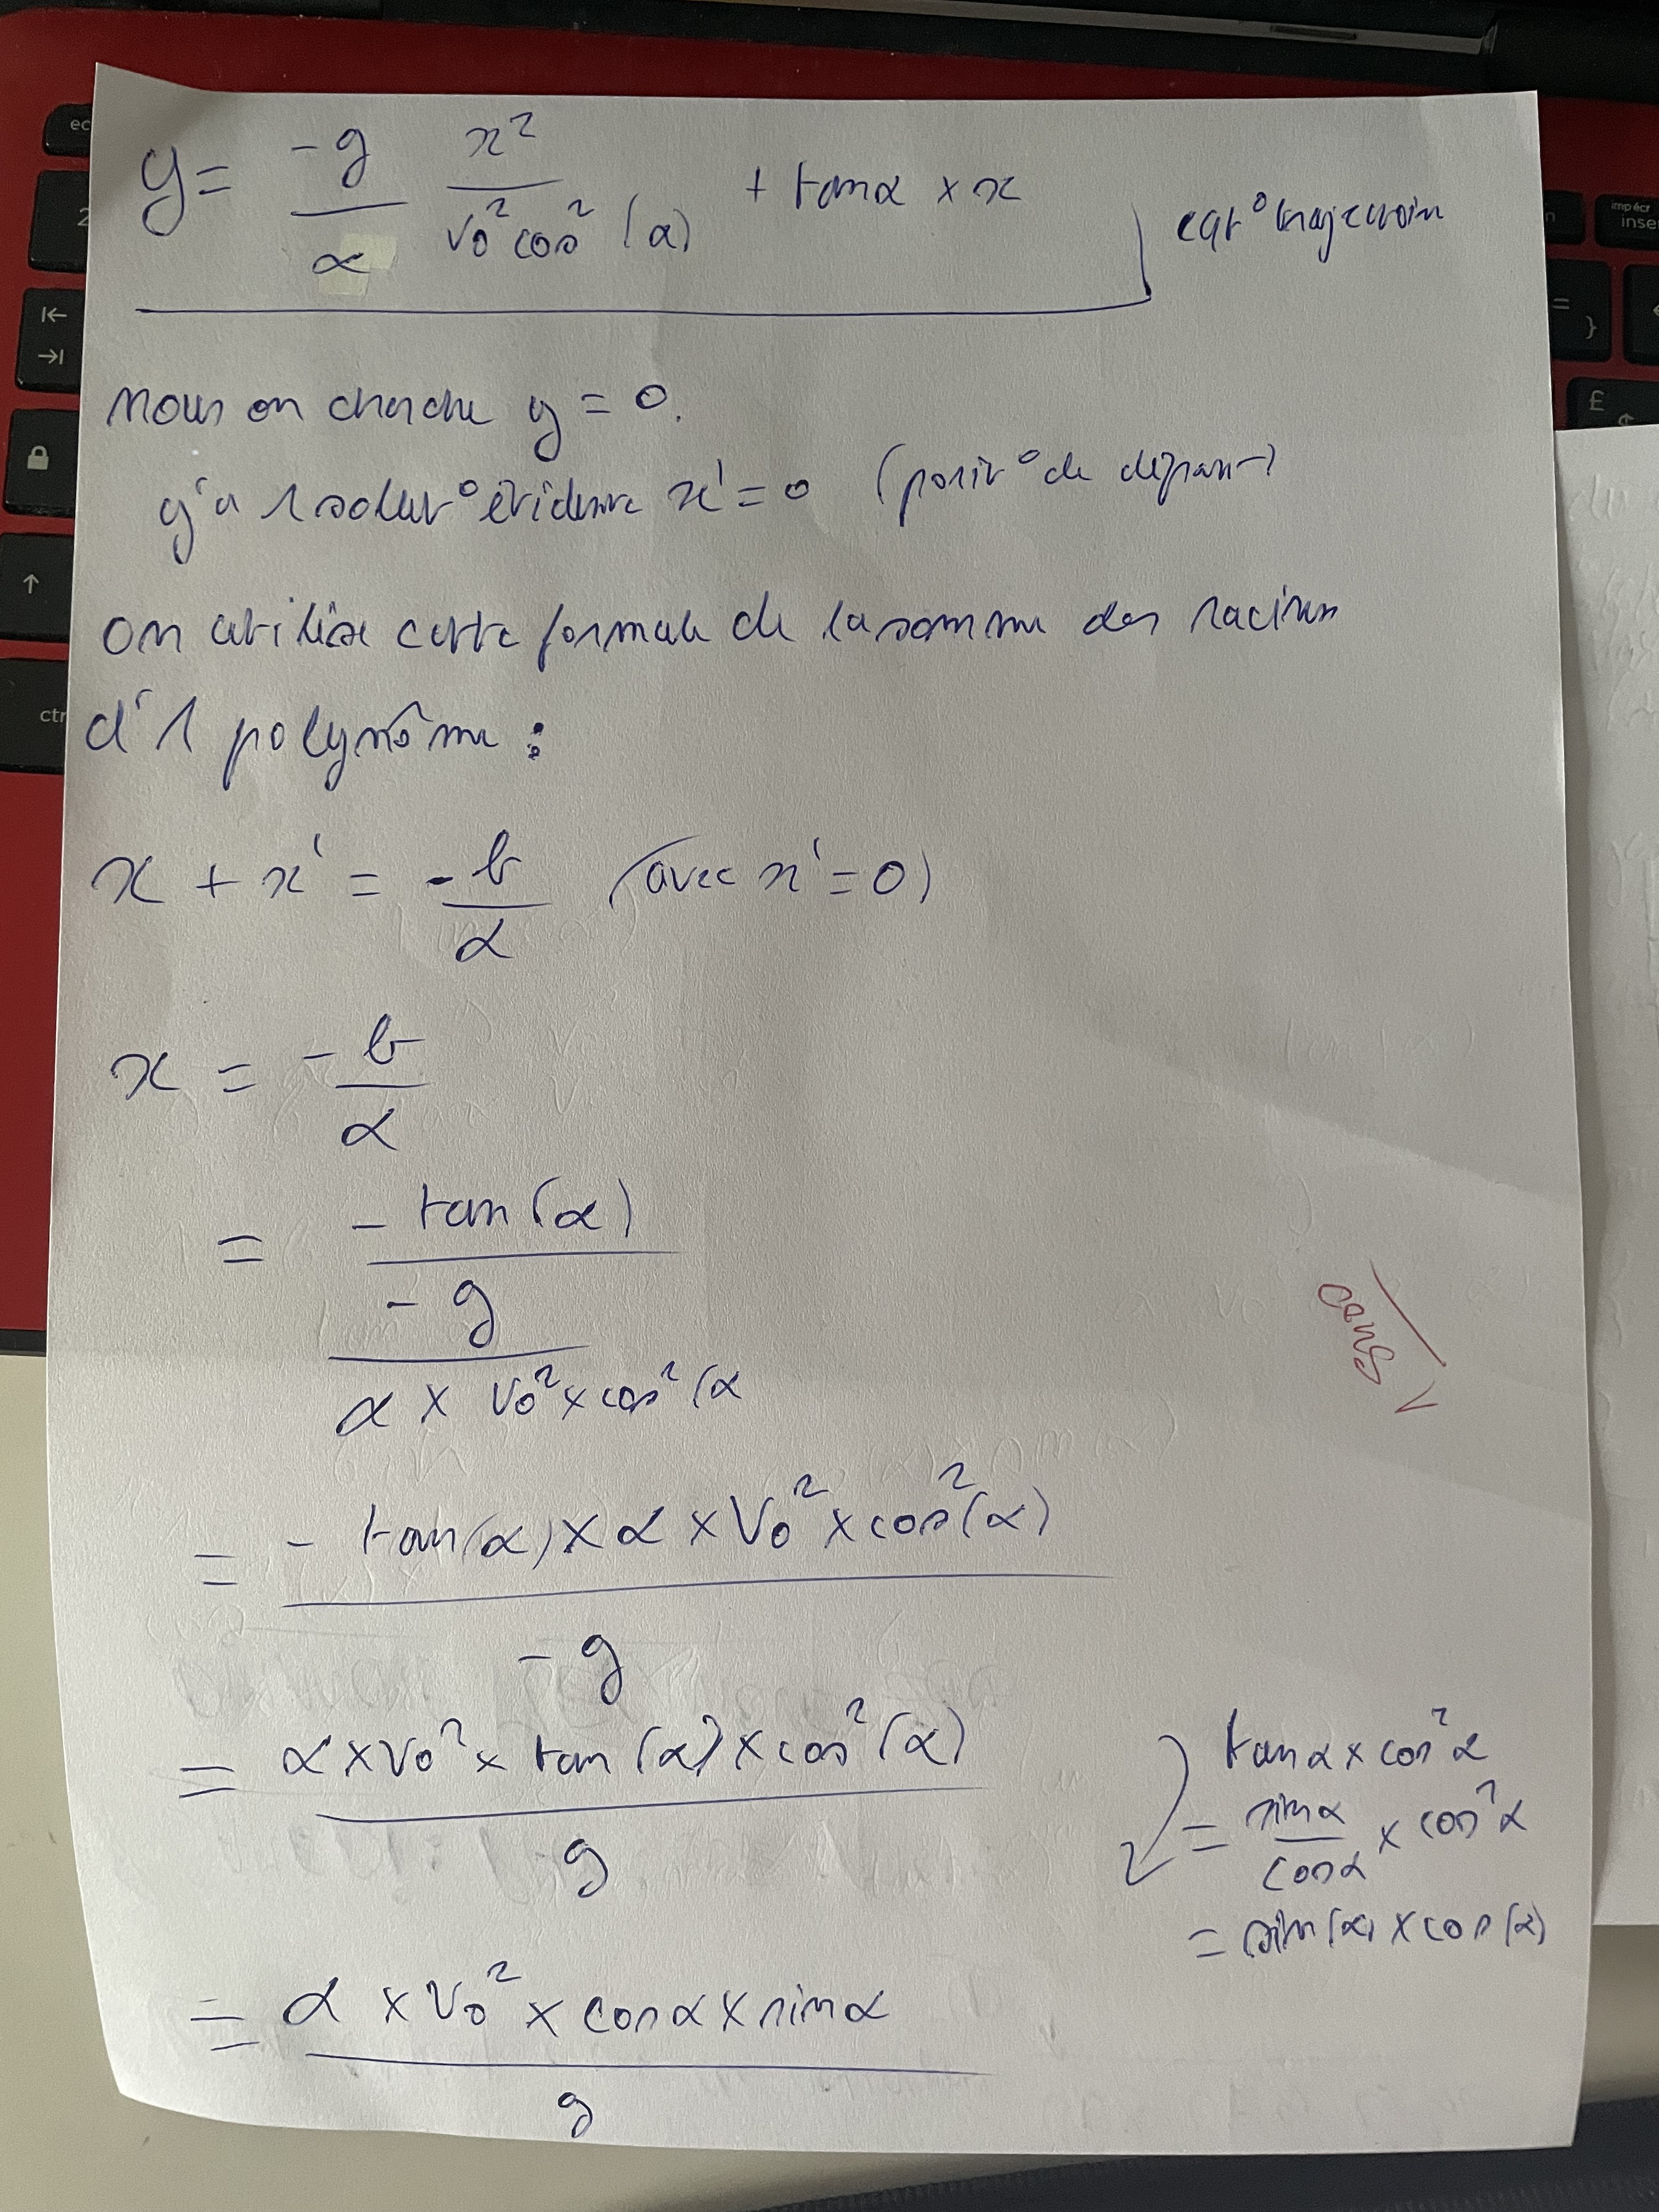 y = -g/α x²/(v₀² cos² (α)) + tanα × x
eqt° trajectoire
nous on cherche y = 0.
y'a 1 solut° évidente x' = 0 (posit° de départ)
on utilise cette formule de la somme des racines
d'1 polynôme :
x + x' = -b/α (avec x' = 0)
x = -b/α
= -tan(α)/(-g/(α × v₀² × cos² (α))
= - tan(α) × α × V₀² × cos²(α) / -g
= α × v₀² × tan(α) × cos²(α) / g
tanα × cos²α
= sinα/cosα × cos²α
= sin(α) × cos(α)
= α × V₀² × cosα × sinα / g